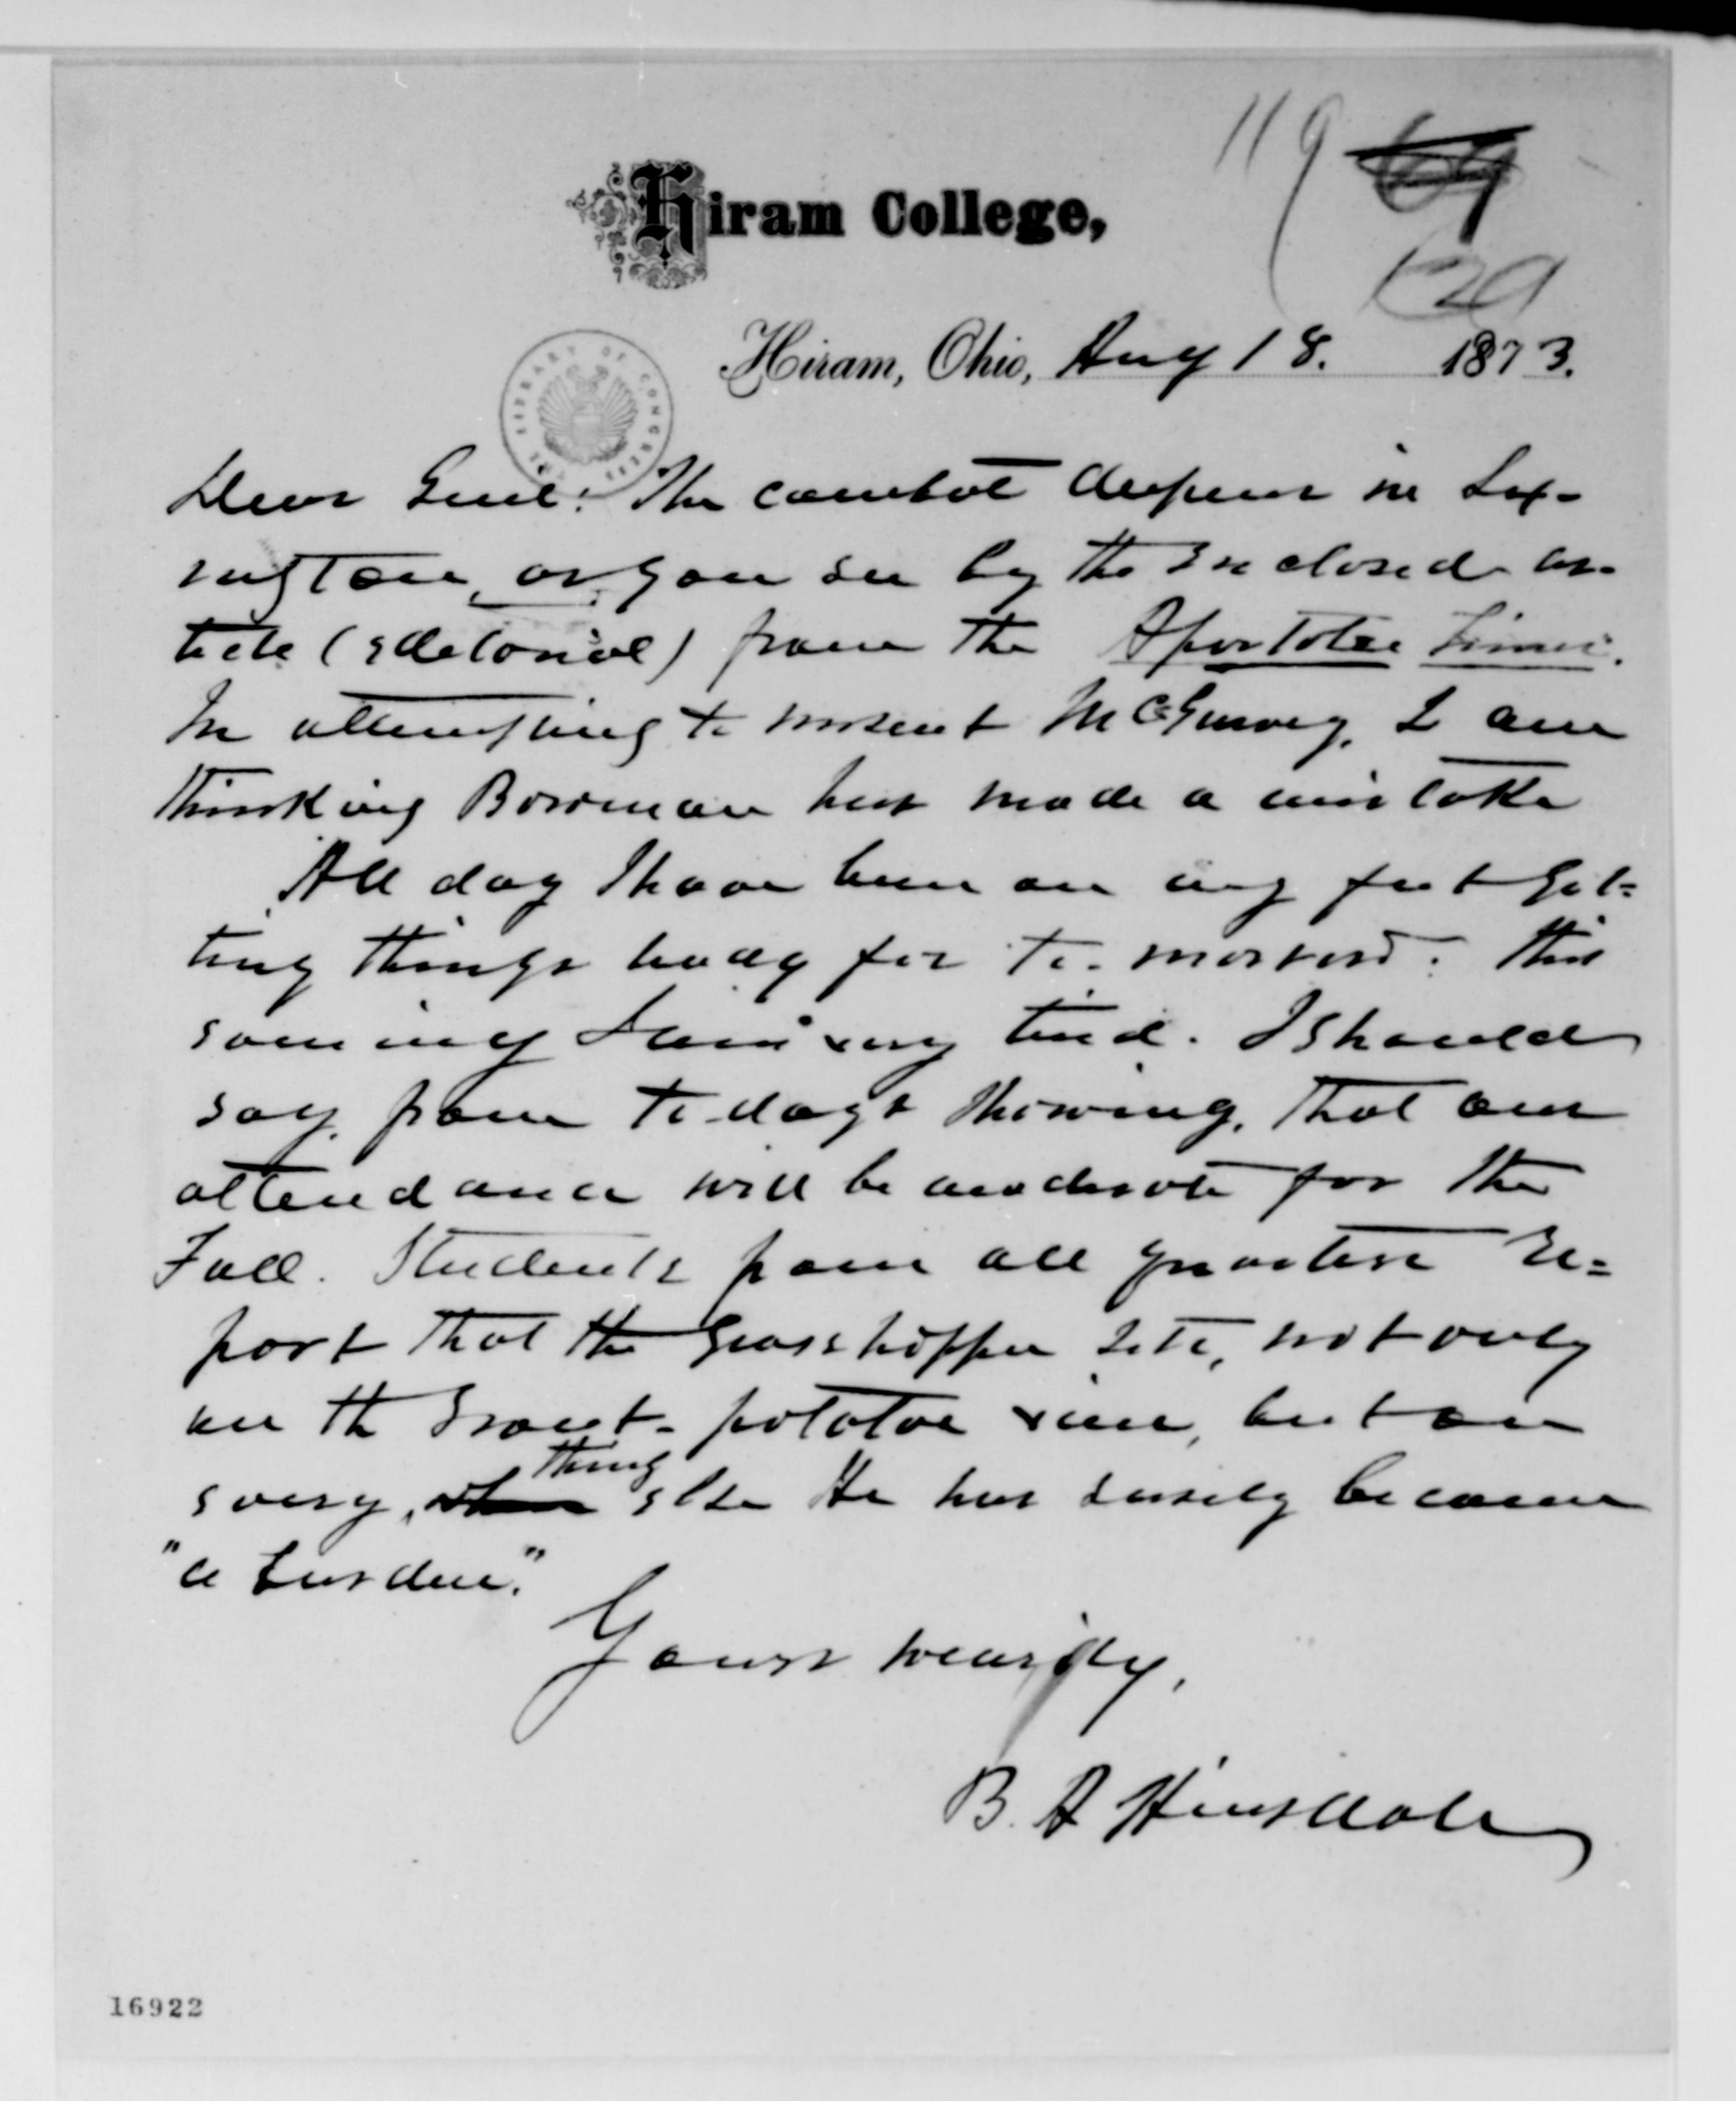 119 69
120
Hiram College,
Hiram, Ohio, Aug 18. 1873.
THE LIBRARY OF CONGRESS
Dear Genl: The combat deepens in Lex-
ington, as you see by the enclosed ar-
ticle (editorial) from the Apostolic Times.
In attempting to McGarvey, I am
thinking Bowman has made a mistake
All day I have been on my feet get-
ting things ready for to-morrow. This
evening I am very tired. I should
say, from to-days showing, that our
attendance will be moderate for the
Fall. Students from all quarters re-
port that the Grasshopper sits, not only
on the sweet-potatoe vine, but on
every thing else He has surely become
"a burden."
Yours wearily,
B. A Hinsdale
16922